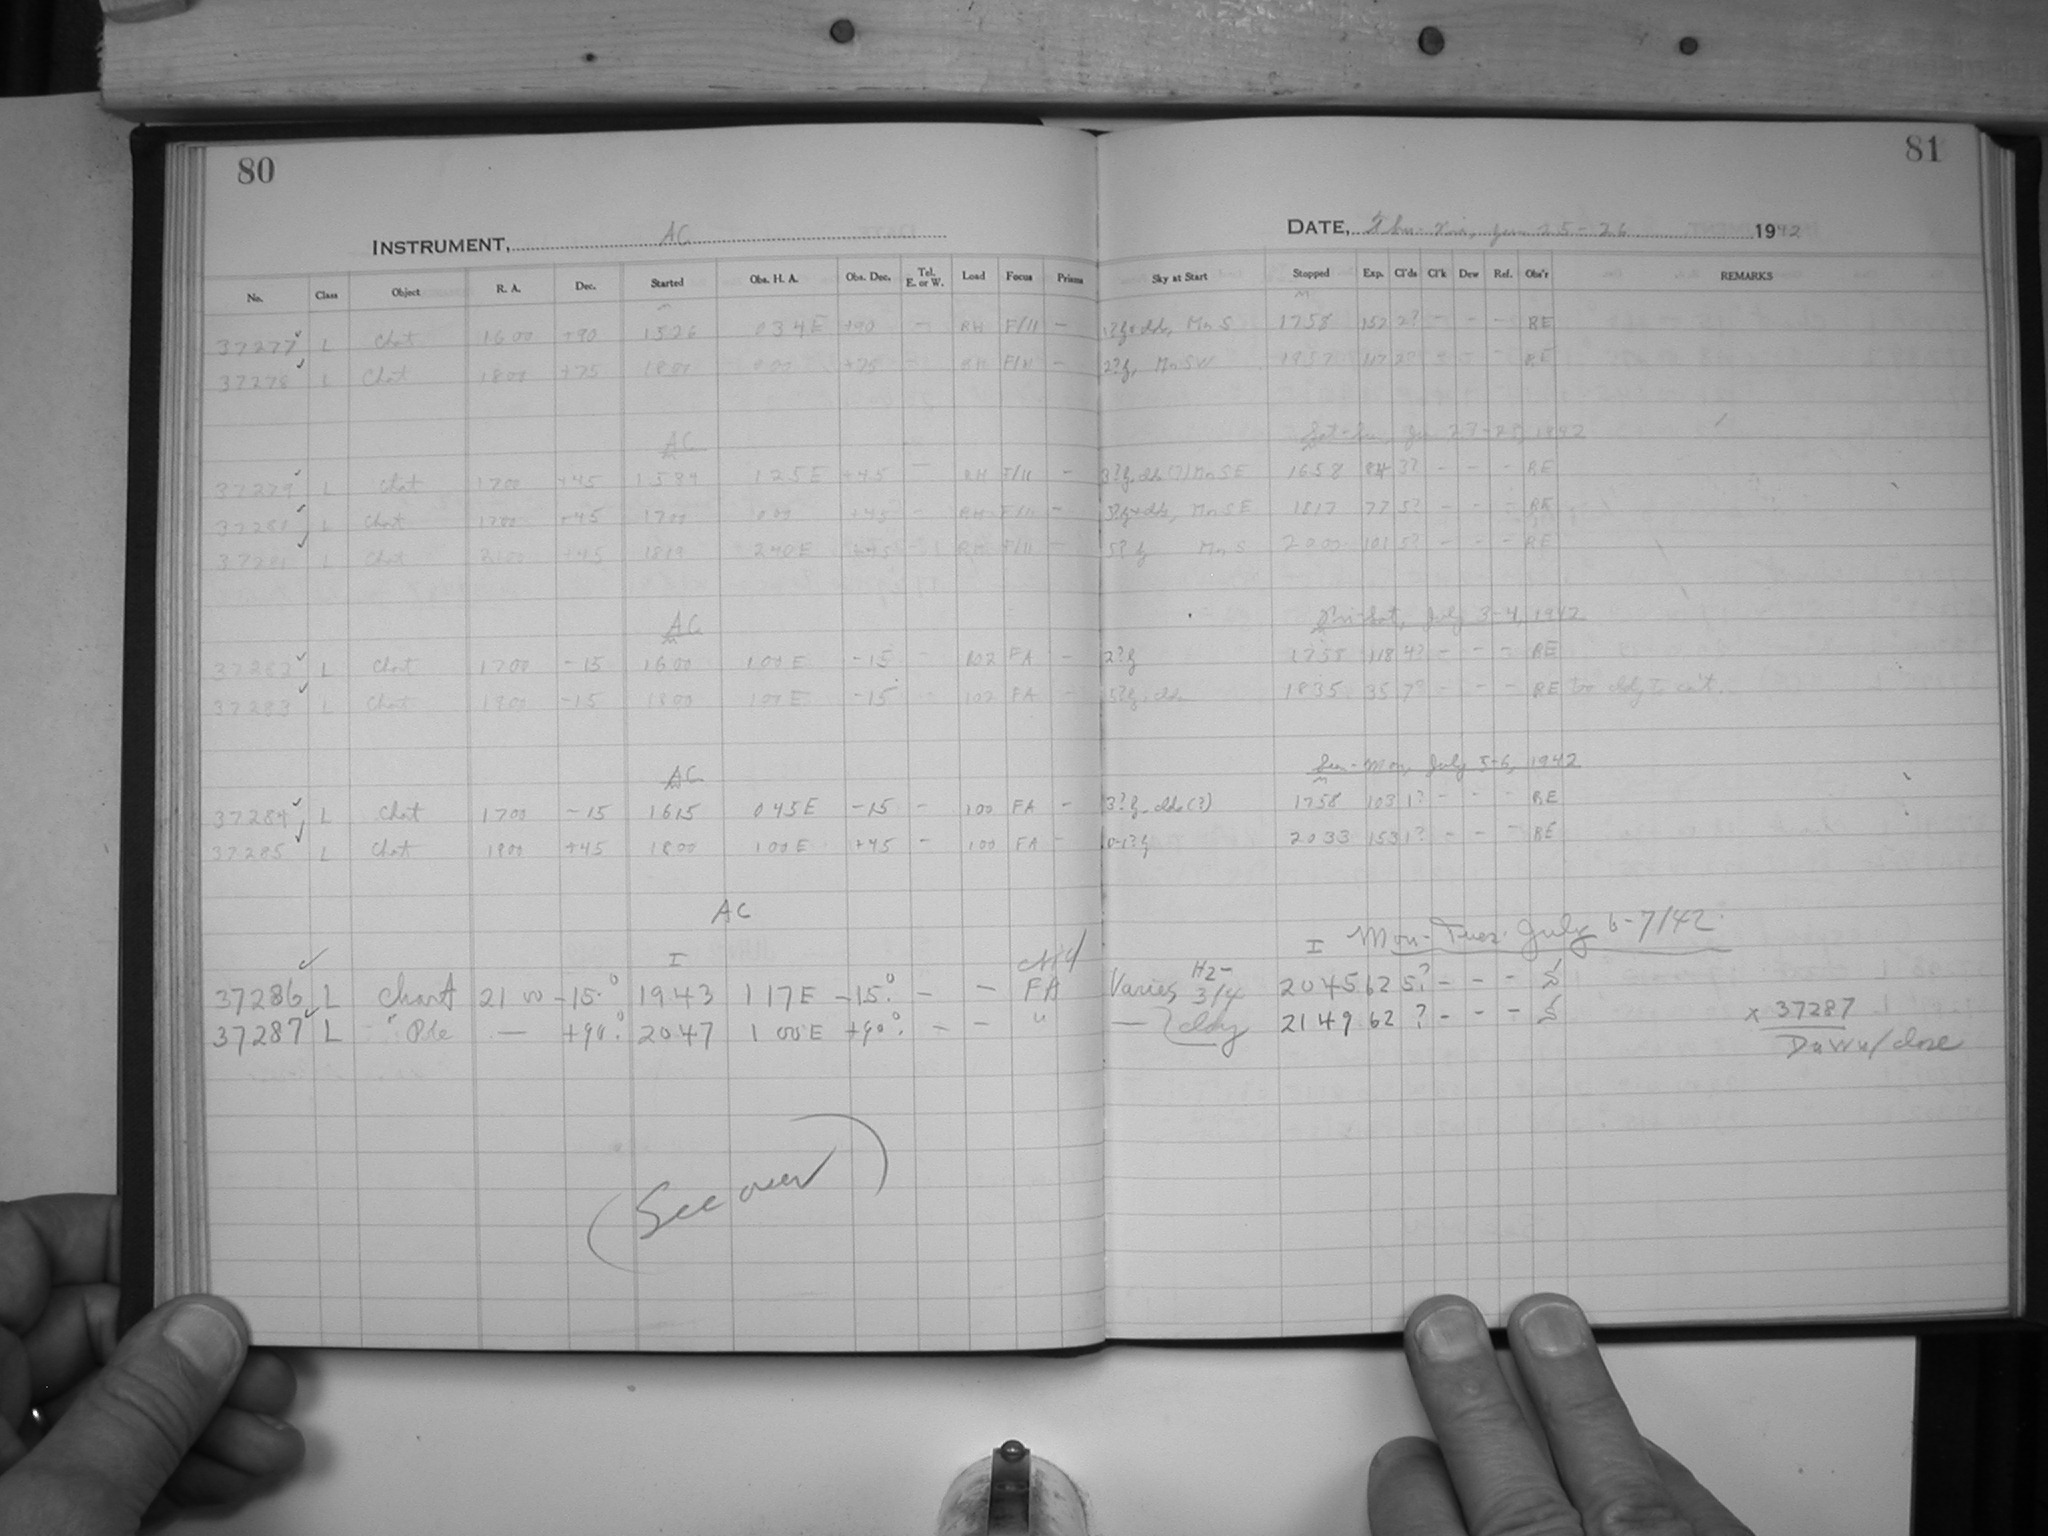 80
81
INSTRUMENT, AC
DATE, 25-26 1942
No. Class Object R. A. Dec. Started Obs. H. A. Obs. Dec. Tel. E. or W. Load Focus Prisms Sky at Start Stopped Exp. Cl'ds Cl'k Dew Ref. Obs'r REMARKS
37277 L Chat 1600 +90 1526 034E +90 - RH F/11 - Mn S 1758 152 2? - - - RE
37278 L Chat 1800 +75 1800 000 +75 - RH F/11 - 2?f, Mn SW 1957 117 2? - - - RE
AC 27-28, 1942
37279 L Chat 1700 +45 125E +45 - RH F/11 - Mn SE 1658 84 3? - - - RE
37280 L Chat 1700 +45 1700 000 +45 - RH F/11 - Mn SE 1817 77 5? - - - RE
37281 L Chat 2100 +45 1819 240E +45 - RH F/11 - 5? f Mn S 2000 101 5? - - - RE
AC Fri-Sat, July 3-4, 1942
37282 L Chat 1700 -15 1600 100E -15 - 102 FA - 2?f 1758 118 4? - - - RE
37283 L Chat 1900 -15 1800 100E -15 - 102 FA - 1835 35 7? - - - RE
AC Sun-Mon, July 5-6, 1942
37284 L Chat 1700 -15 1615 045E -15 - 100 FA - 1758 103 1? - - - RE
37285 L Chat 1900 +45 1800 100E +45 - 100 FA - 0-1?f 2033 153 1? - - - RE
AC
I I Mon-Tues. July 6-7/42.
37286 L Chart 21 00 -15.° 1943 1 17E -15.° - - FA Varies H2- 3/4 2045 62 5? - - -
37287 L " Pole — +90.° 2047 1 00E +90.° - - " — 2149 62 ? - - - x 37287
Dawn/close
(See over)